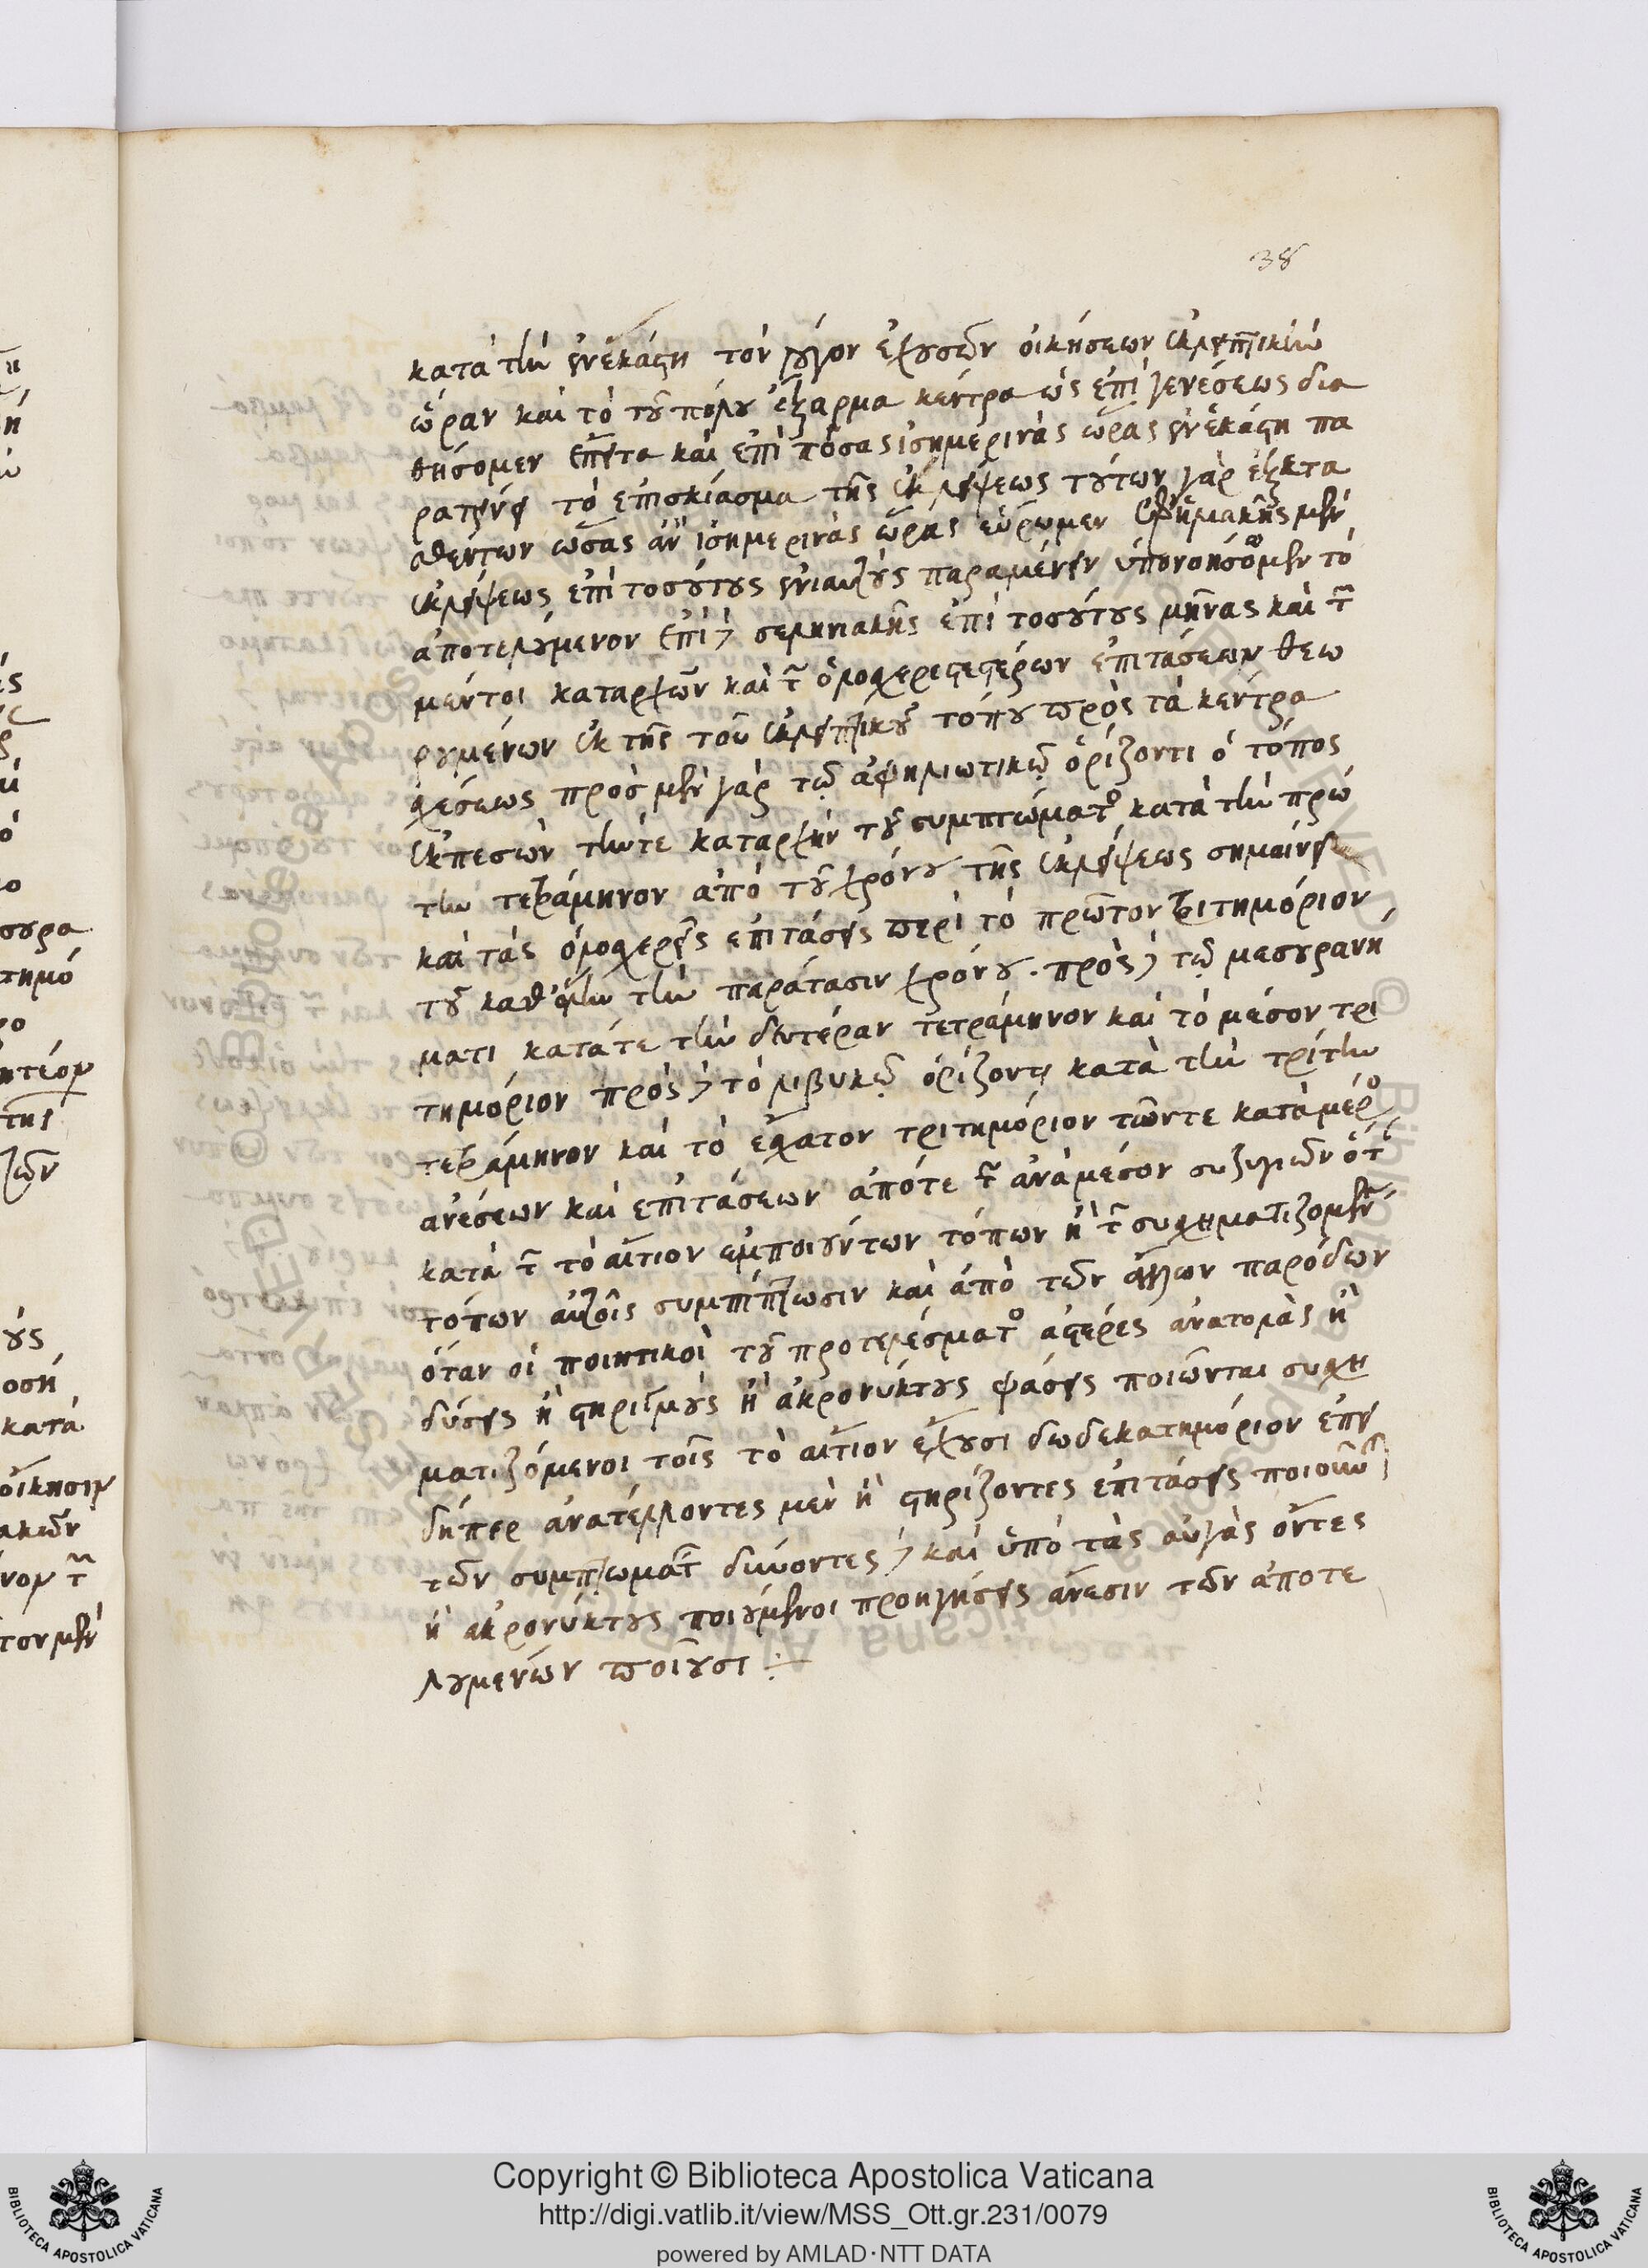 38
κατὰ τὴν ἐν ἑκάστῃ τὸν λόγον ἐχουσῶν οἰκήσεων ἐκλειπτικὴν
ὥραν καὶ τὸ τοῦ πόλου ἔξαρμα κέντρα ὡς ἐπὶ γενέσεως δια
θήσομεν ἔπειτα καὶ ἐπὶ πόσας ἰσημερινὰς ὥρας ἐν ἑκάστῃ πα
ρατείνει τὸ ἐπισκίασμα τῆς ἐκλείψεως τούτων γὰρ ἐξετα
σθέντων ὥσας ἂν ἰσημερινὰς ὥρας εὕρωμεν ἐφ' ἡλιακῆς μὲν
ἐκλείψεως ἐπὶ τοσούτους ἐνιαυτοὺς παραμένειν ὑπονοήσομεν τὸ
ἀποτελούμενον ἐπὶ δὲ σεληνιακῆς ἐπὶ τοσούτους μῆνας καὶ τῶν
μέντοι καταρχῶν καὶ τῶν ὁλοσχερεστέρων ἐπιτάσεων θεω
ρουμένων ἐκ τῆς τοῦ ἐκλειπτικοῦ τόπου πρὸς τὰ κέντρα
σχέσεως πρὸς μὲν γὰρ τῷ ἀφηλιωτικῷ ὁρίζοντι ὁ τόπος
ἐκπεσὼν τήν τε καταρχὴν τοῦ συμπτώματος κατὰ τὴν πρώ
την τετράμηνον ἀπὸ τοῦ χρόνου τῆς ἐκλείψεως σημαίνει
καὶ τὰς ὁλοσχερεῖς ἐπιτάσεις περὶ τὸ πρῶτον τριτημόριον
τοῦ καθ' ὅλην τὴν παράτασιν χρόνου. πρὸς δὲ τῷ μεσουρανή
ματι κατά τε τὴν δευτέραν τετράμηνον καὶ τὸ μέσον τρι
τημόριον πρὸς δὲ τὸ λιβυκῷ ὁρίζοντι κατὰ τὴν τρίτην
τετράμηνον καὶ τὸ ἔσχατον τριτημόριον τῶν τε κατὰ μέρος
ἀνέσεων καὶ ἐπιτάσεων ἀπό τε τῶν ἀνὰ μέσον συζυγιῶν ὅταν
κατὰ τῶν τὸ αἴτιον ἐμποιούντων τόπων ἢ τῶν συσχηματιζομένων
τόπων αὐτοῖς συμπίπτωσιν καὶ ἀπὸ τῶν ἄλλων παρόδων
ὅταν οἱ ποιητικοὶ τοῦ προτελέσματος ἀστέρες ἀνατολὰς ἢ
δύσεις ἢ στηριγμοὺς ἢ ἀκρονύκτους φάσεις ποιῶνται συσχη
ματιζόμενοι τοῖς τὸ αἴτιον ἔχουσι δωδεκατημόριον ἐπει
δήπερ ἀνατέλλοντες μὲν ἢ στηρίζοντες ἐπιτάσεις ποιοῦνται
τῶν συμπτωμάτων δύνοντες δὲ καὶ ὑπὸ τὰς αὐγὰς ὄντες
ἢ ἀκρονύκτους ποιούμενοι προηγήσεις ἄνεσιν τῶν ἀποτε
λουμένων ποιοῦσι :
Copyright © Biblioteca Apostolica Vaticana
http://digi.vatlib.it/view/MSS_Ott.gr.231/0079
powered by AMLAD·NTT DATA